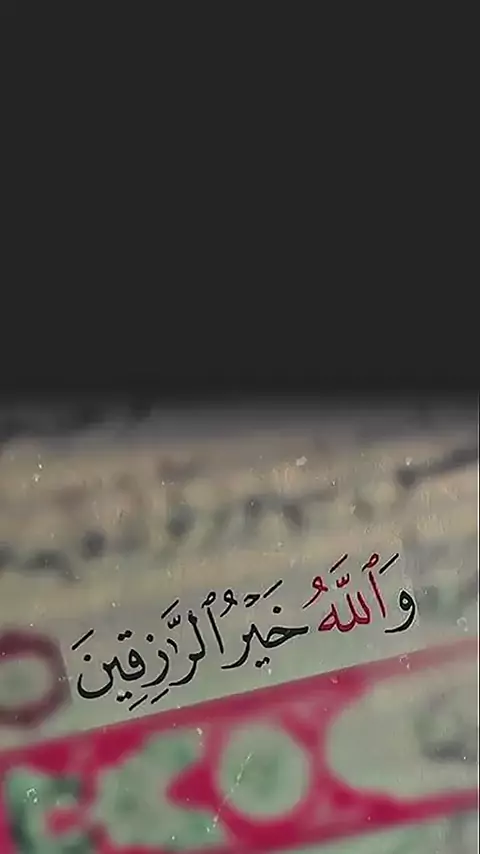 وَٱللَّهُ خَيْرُ ٱلرَّٰزِقِينَ